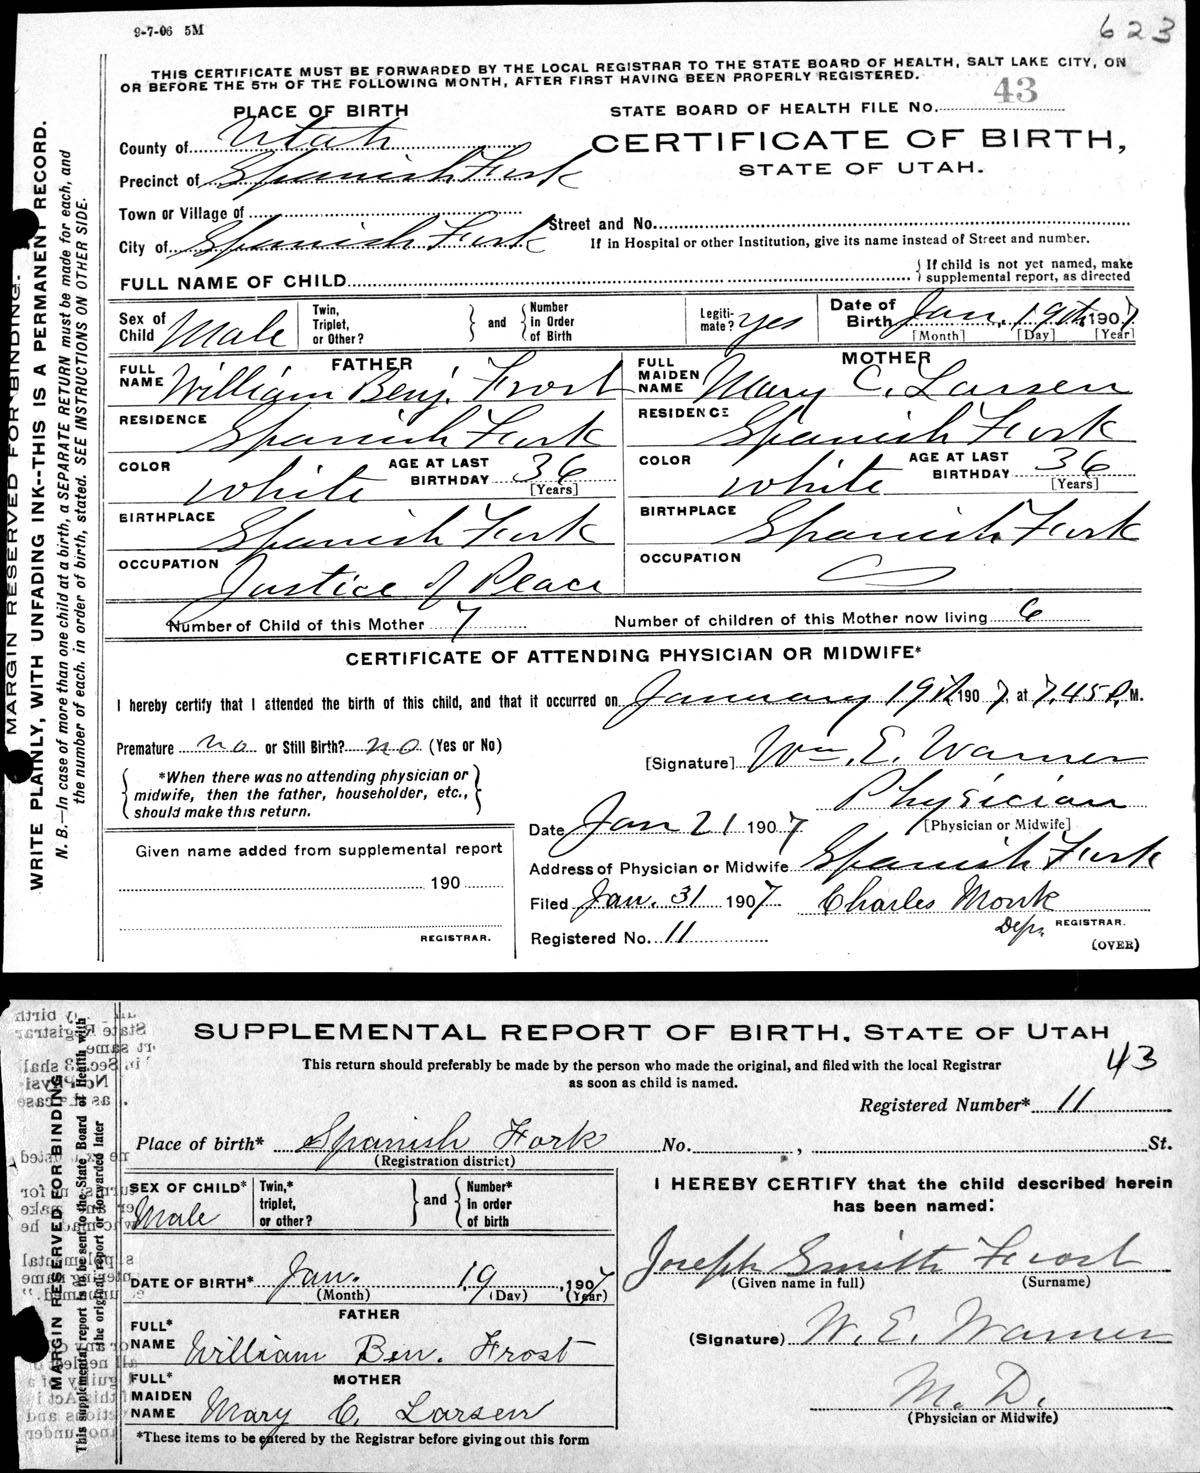 9-7-06 5M
623
THIS CERTIFICATE MUST BE FORWARDED BY THE LOCAL REGISTRAR TO THE STATE BOARD OF HEALTH, SALT LAKE CITY, ON
OR BEFORE THE 5TH OF THE FOLLOWING MONTH, AFTER FIRST HAVING BEEN PROPERLY REGISTERED.
PLACE OF BIRTH
STATE BOARD OF HEALTH FILE No. 43
County of Utah
CERTIFICATE OF BIRTH,
STATE OF UTAH.
Precinct of Spanish Fork
Town or Village of
Street and No.
City of Spanish Fork
If in Hospital or other Institution, give its name instead of Street and number.
FULL NAME OF CHILD
{ If child is not yet named, make
supplemental report, as directed
Sex of Child Male
Twin, Triplet, or Other?
} and {
Number in Order of Birth
Legiti-mate? yes
Date of Birth Jan. 19th, 1907
[Month] [Day] [Year]
FATHER
MOTHER
FULL NAME William Benj. Frost
FULL MAIDEN NAME Mary C. Larsen
RESIDENCE Spanish Fork
RESIDENCE Spanish Fork
COLOR white AGE AT LAST BIRTHDAY 36 [Years]
COLOR white AGE AT LAST BIRTHDAY 36 [Years]
BIRTHPLACE Spanish Fork
BIRTHPLACE Spanish Fork
OCCUPATION Justice of Peace
OCCUPATION
Number of Child of this Mother 7
Number of children of this Mother now living 6
CERTIFICATE OF ATTENDING PHYSICIAN OR MIDWIFE*
I hereby certify that I attended the birth of this child, and that it occurred on January 19th 1907, at 7.45 P. M.
Premature no or Still Birth? no (Yes or No)
[Signature] Wm. E. Warner
*When there was no attending physician or
midwife, then the father, householder, etc.,
should make this return.
Physician
[Physician or Midwife]
Date Jan 21 1907
Given name added from supplemental report
190
REGISTRAR.
Address of Physician or Midwife Spanish Fork
Filed Jan. 31 1907 Charles Monk
Dep. REGISTRAR.
Registered No. 11
(OVER)
MARGIN RESERVED FOR BINDING.
WRITE PLAINLY, WITH UNFADING INK--THIS IS A PERMANENT RECORD.
N. B.—In case of more than one child at a birth, a SEPARATE RETURN must be made for each, and
the number of each, in order of birth, stated. SEE INSTRUCTIONS ON OTHER SIDE.
SUPPLEMENTAL REPORT OF BIRTH, STATE OF UTAH
This return should preferably be made by the person who made the original, and filed with the local Registrar
as soon as child is named.
43
Registered Number* 11
Place of birth* Spanish Fork No. , St.
(Registration district)
SEX OF CHILD* Male
Twin,* triplet, or other?
} and {
Number* in order of birth
I HEREBY CERTIFY that the child described herein
has been named:
Joseph Smith Frost
(Given name in full) (Surname)
DATE OF BIRTH* Jan. 19, 1907
(Month) (Day) (Year)
FATHER
FULL* NAME William Ben. Frost
(Signature) W. E. Warner
MOTHER
FULL* MAIDEN NAME Mary C. Larsen
M. D.
(Physician or Midwife)
*These items to be entered by the Registrar before giving out this form
MARGIN RESERVED FOR BINDING
This supplemental report is to be sent to the State Board of Health with
the original report or forwarded later